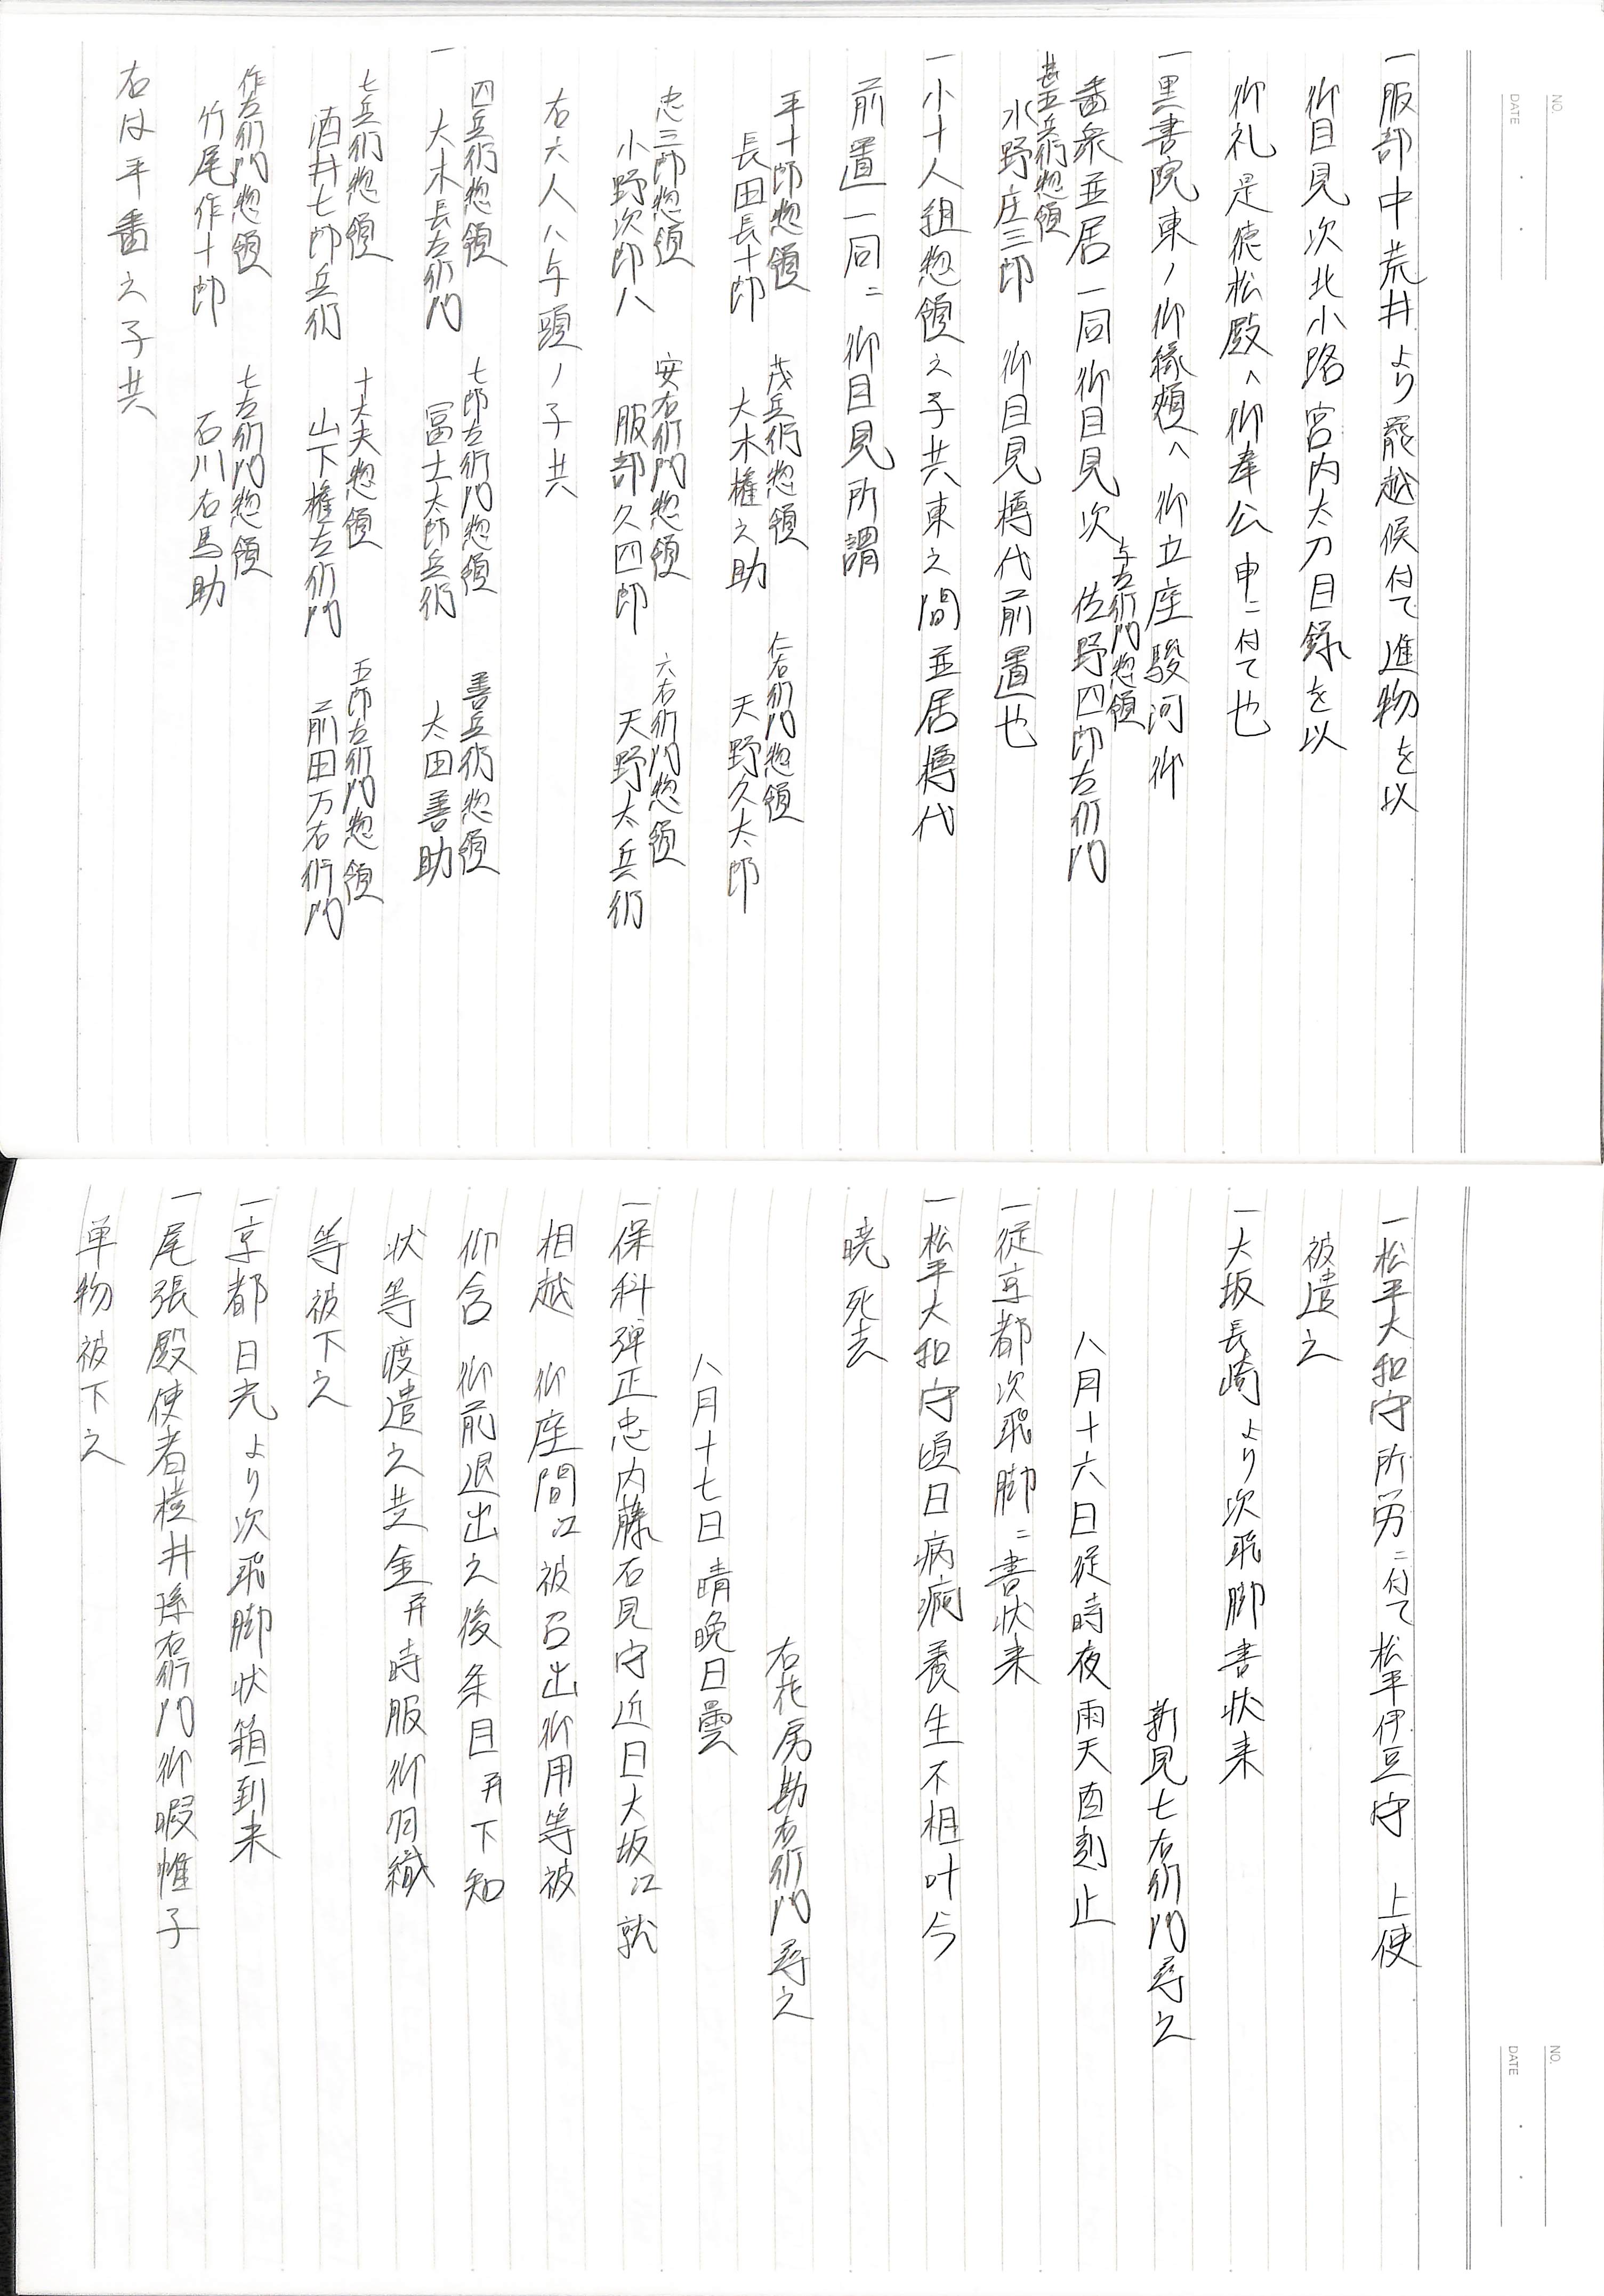 NO.
DATE
一服部中荒井より罷越候付て進物を以
御目見次北小路宮内太刀目録を以
御礼是徳松殿へ御奉公申ニ付て也
一黒書院東ノ御縁頬へ御立座駿河御
番衆並居一同御目見次 与左衛門惣領 佐野四郎左衛門
甚五兵衛惣領 水野庄三郎 御目見樽代前置也
一小十人組惣領之子共東之間並居樽代
前置一同ニ御目見所謂
平十郎惣領 茂兵衛惣領 仁右衛門惣領
長田長十郎 大木権之助 天野久太郎
忠三郎惣領 安右衛門惣領 六右衛門惣領
小野次郎八 服部久四郎 天野太兵衛
右六人ハ与頭ノ子共
四兵衛惣領 七郎左衛門惣領 善兵衛惣領
一 大木長左衛門 冨士太郎兵衛 太田善助
七兵衛惣領 十太夫惣領 五郎左衛門惣領
酒井七郎兵衛 山下権左衛門 前田万右衛門
作左衛門惣領 七左衛門惣領
竹尾作十郎 石川右馬助
右は平番之子共
NO.
DATE
一松平大和守所労ニ付て松平伊豆守 上使
被遣之
一大坂長崎より次飛脚書状来
新見七右衛門尋之
八月十六日従時夜雨天酉刻止
一従京都次飛脚ニ書状来
一松平大和守頃日病痾養生不相叶今
暁死去
右花房勘右衛門尋之
八月十七日晴晩日曇
一保科弾正忠内藤石見守近日大坂江就
相越 御座間江被召出御用等被
仰含 御前退出之後条目并下知
状等渡遣之其金并時服御羽織
等被下之
一京都日光より次飛脚状箱到来
一尾張殿使者横井孫右衛門御暇帷子
単物被下之